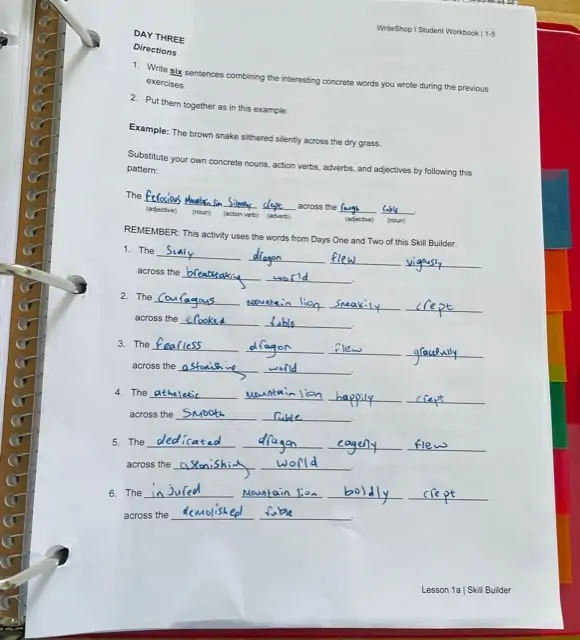 WriteShop I Student Workbook | 1-5
DAY THREE
Directions
1. Write six sentences combining the interesting concrete words you wrote during the previous
exercises.
2. Put them together as in this example:
Example: The brown snake slithered silently across the dry grass.
Substitute your own concrete nouns, action verbs, adverbs, and adjectives by following this
pattern:
The ferocious Mountain lion Silently crept across the rough
(adjective) (noun) (action verb) (adverb) (adjective) (noun)
REMEMBER: This activity uses the words from Days One and Two of this Skill Builder.
1. The Scaly dragon flew vigously
across the breathtaking world.
2. The Couragous mountain lion Sneakily crept
across the crooked
3. The fearless dragon flew gracefully
across the astonishing world.
4. The atheletic mountain lion happily crept
across the Smooth
5. The dedicated dragon eagerly flew
across the astonishing world.
6. The injured Mountain lion boldly crept
across the demolished
Lesson 1a | Skill Builder